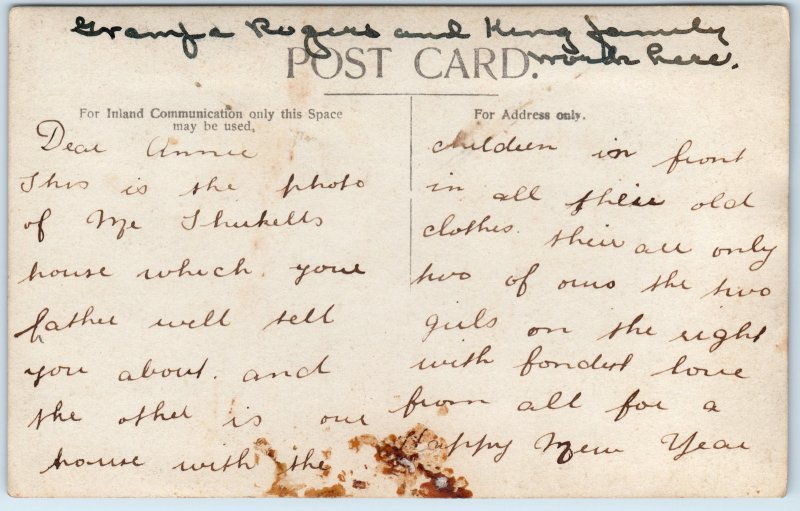 Grampa Rogers and King family
works here.
POST CARD.
For Inland Communication only this Space
may be used,
For Address only.
Dear Annie
This is the photo
of Mr Thurkells
house which your
father will tell
you about. and
the other is our
house with the
children in front
in all their old
clothes. their are only
two of ours the two
girls on the right
with fondest love
from all for a
Happy New Year